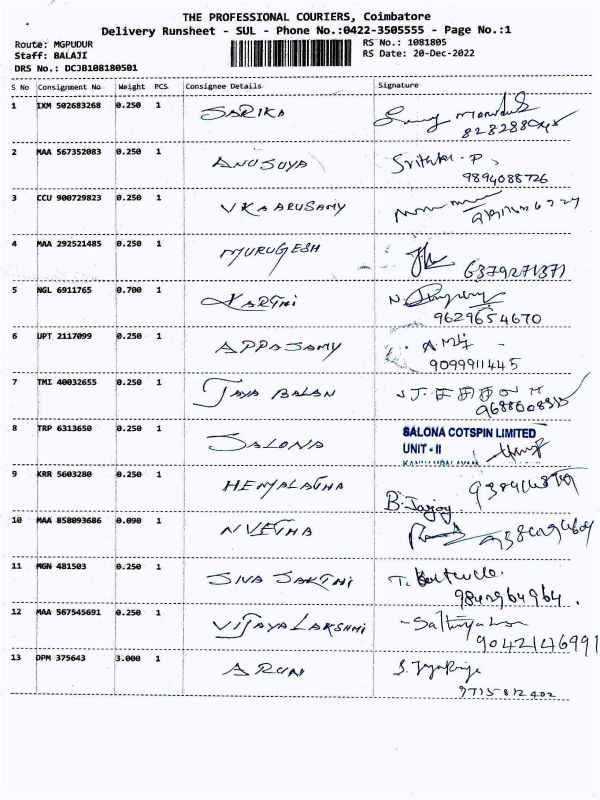 THE PROFESSIONAL COURIERS, Coimbatore
Delivery Runsheet - SUL - Phone No.:0422-3505555 - Page No.:1
Route: MGPUDUR RS No.: 1081805
Staff: BALAJI RS Date: 20-Dec-2022
DRS No.: DCJB108180501
S No Consignment No Weight PCS Consignee Details Signature
1 IXM 502683268 0.250 1 SARIKA
2 MAA 567352083 0.250 1 ANUSUYA
9894088726
3 CCU 900729823 0.250 1 VKAARUSAMY
4 MAA 292521485 0.250 1 MURUGESH
6379271371
5 NGL 6911765 0.700 1 KARTHI
9629654670
6 UPT 2117099 0.250 1 APPASAMY
9099911445
7 TMI 40032655 0.250 1 JAYA BALAN
8 TRP 6313650 0.250 1 SALONA SALONA COTSPIN LIMITED
UNIT - II
9 KRR 5603280 0.250 1 HEMALATHA
10 MAA 858093686 0.090 1 NVETHA
11 MGN 481503 0.250 1 SIVA SAKTHI
9842964964.
12 MAA 567545691 0.250 1 VIJAYALAKSHMI
9042146991
13 DPM 375643 3.000 1 ARUN
9715812402